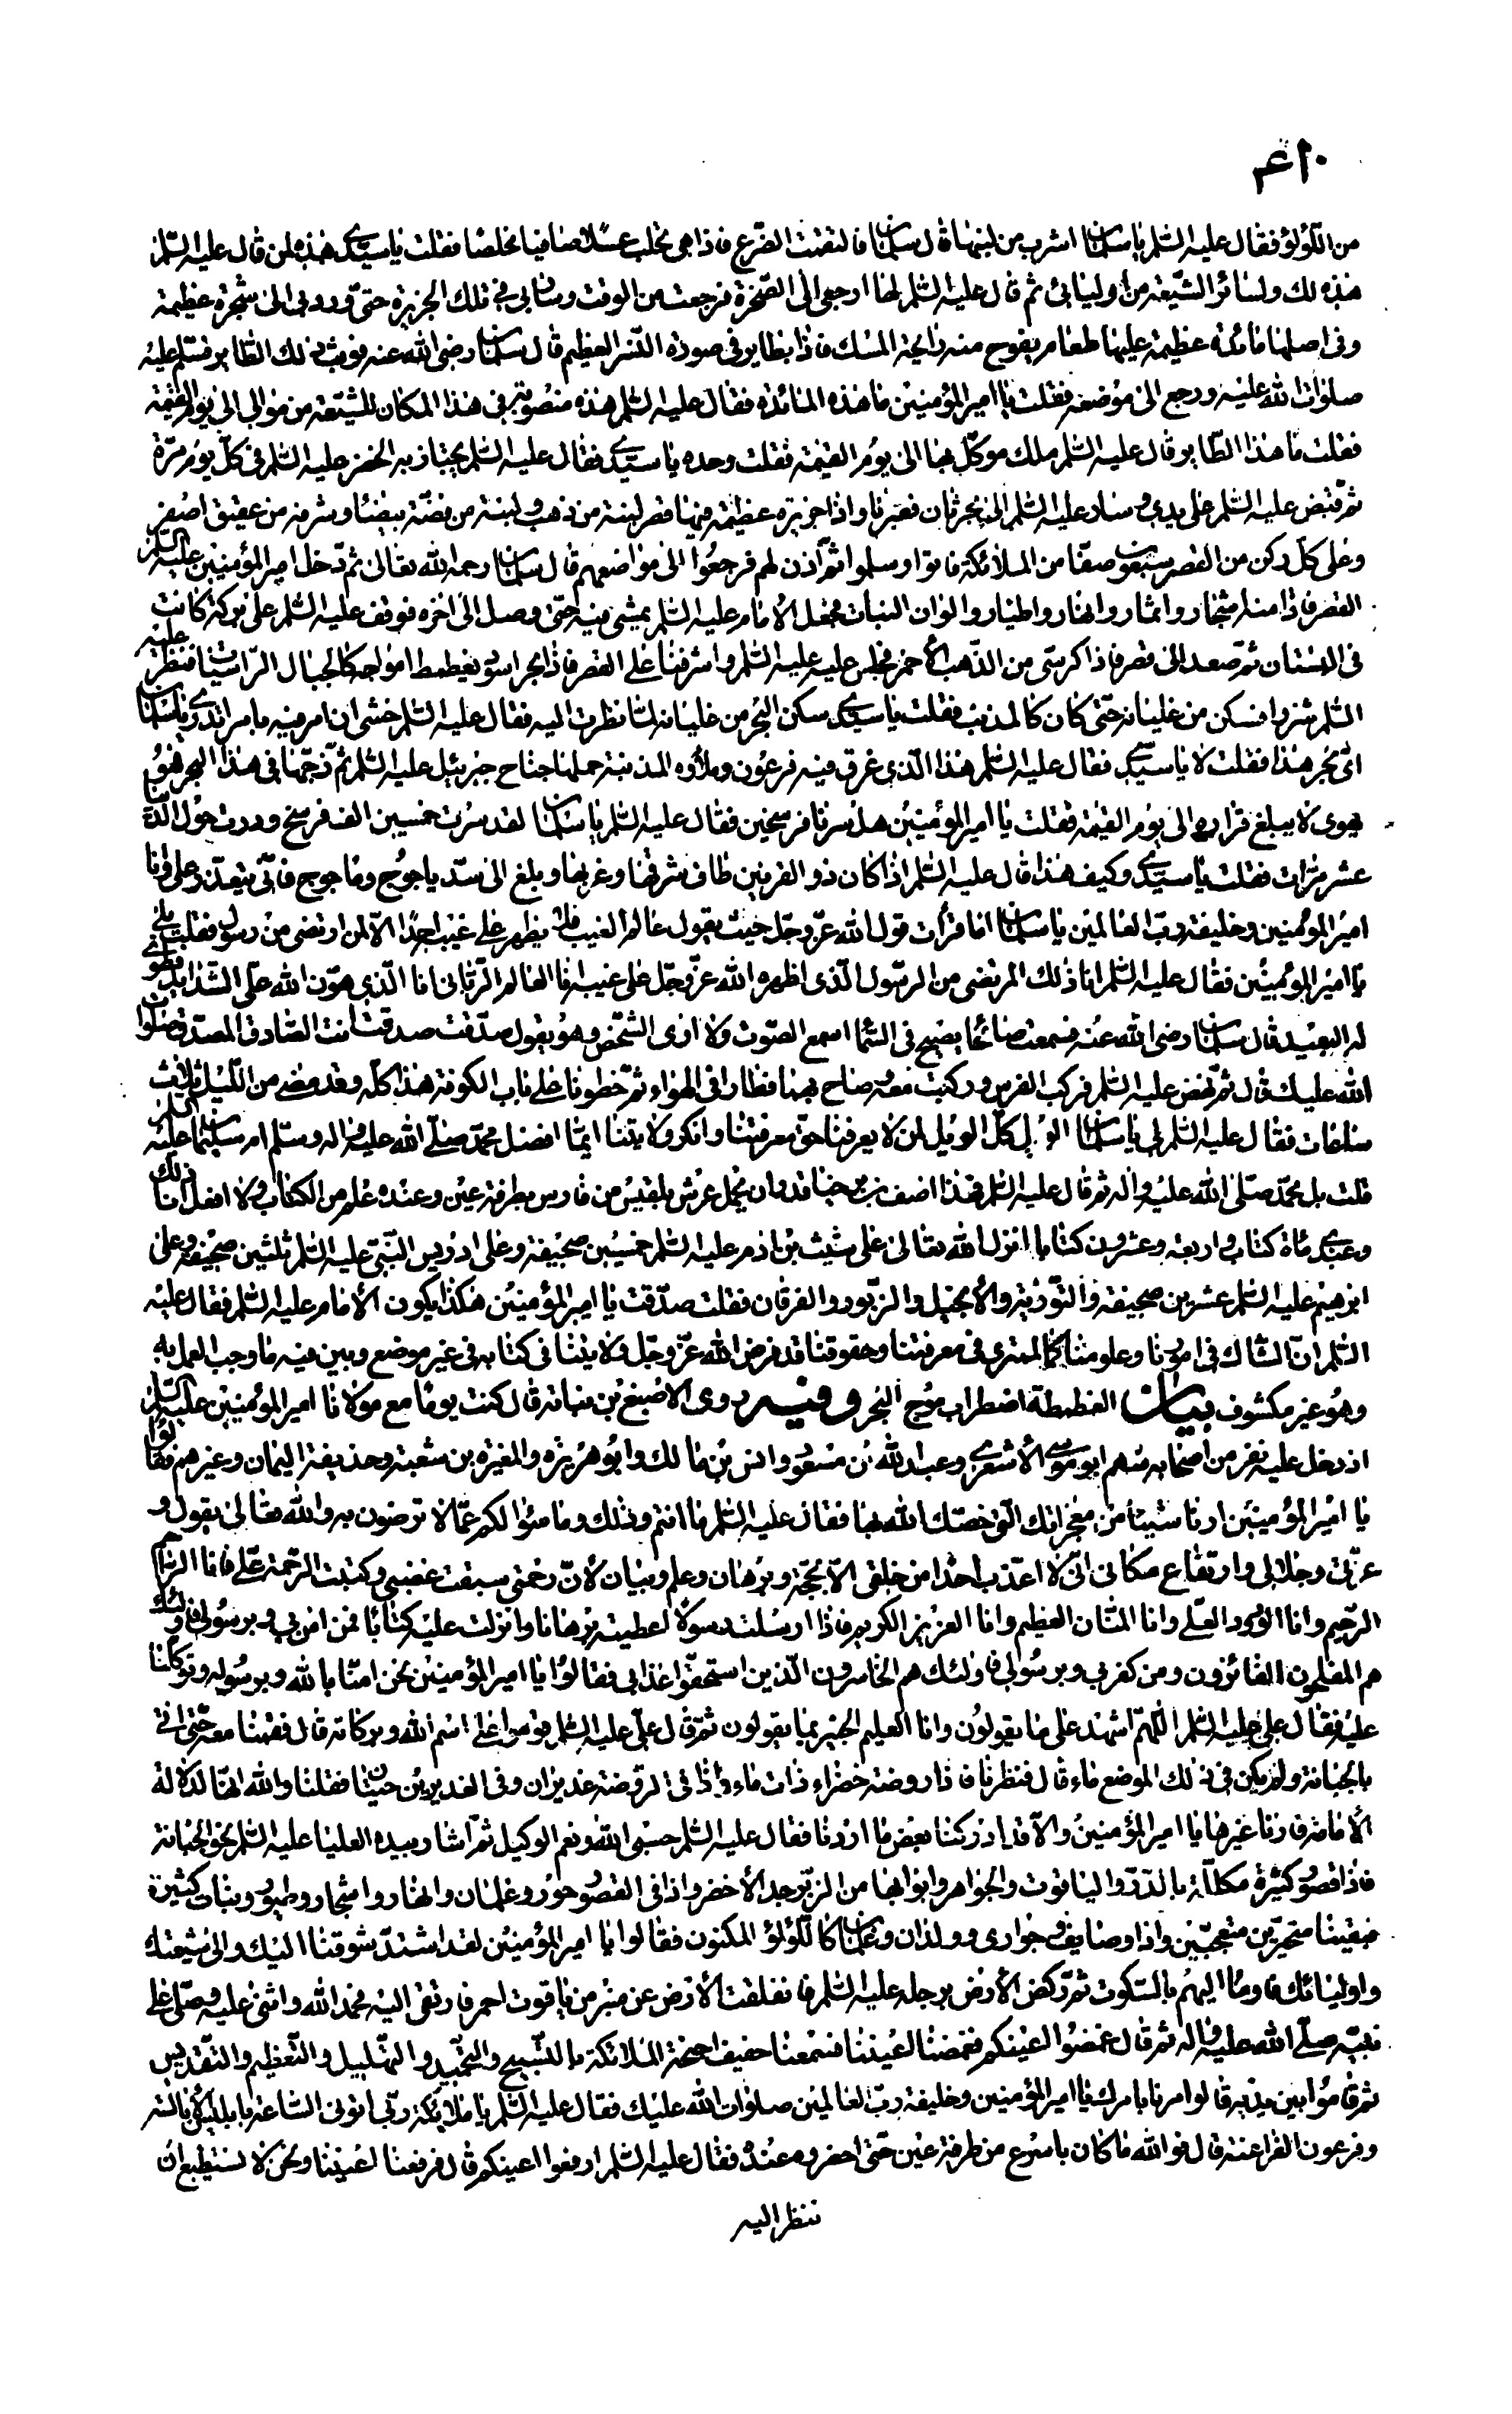 ٤١٠
من اللؤلؤ فقال عليه السّلم يا سلمان اشرب من لبنها قال سلمان فالتقمت الضّرع فاذا هى تحلب عسلا صافيا مخلصا فقلت يا سيّدى هذه لمن قال عليه السّلم
هذه لك ولسائر الشّيعة من اوليائى ثم قال عليه السّلم لها ارجعى الى الصّخرة فرجعت من الوقت وسار بى فى تلك الجزيرة حتى ورد بى الى شجرة عظيمة
وفى اصلها مائدة عظيمة عليها طعام يفوح منه رايحة المسك فاذا بطاير فى صورة النّسر العظيم قال سلمان رضى الله عنه فوثب ذلك الطّاير فسلّم عليه
صلوات الله عليه ورجع الى موضعه فقلت يا امير المؤمنين ما هذه المائدة فقال عليه السّلم هذه منصوبة فى هذا المكان للشّيعة من موالى الى يوم القيمة
فقلت ما هذا الطّاير قال عليه السّلم ملك موكّل بها الى يوم القيمة فقلت وحده يا سيّدى فقال عليه السّلم يجتاز به الخضر عليه السّلم فى كلّ يوم مرّة
ثم قبض عليه السّلم على يدى وسار عليه السّلم الى بحر ثان فعبرنا واذا جزيرة عظيمة فيها قصر لبنة من ذهب ولبنة من فضّة بيضاء وشرفه من عقيق اصفر
وعلى كلّ ركن من القصر سبعون صفّا من الملائكة فاتوا وسلموا ثم اذن لهم فرجعوا الى مواضعهم قال سلمان رحمه الله تعالى ثم دخل امير المؤمنين عليه السّلم
القصر فاذا فيه اشجار واثمار وانهار واطيار والوان النبات فجعل الامام عليه السّلم يمشى فيه حتى وصل الى اخره فوقف عليه السّلم على بركة كانت
فى البستان ثم صعد الى قصر فاذا كرسى من الذّهب الاحمر فجلس عليه عليه السّلم واشرفنا على القصر فاذا بحر اسود يغطمط امواجه كالجبال الرّاسيات فنظر عليه
السّلم شزرا فسكن من غليانه حتى كان كالمذنب فقلت يا سيّدى سكن البحر من غليانه لمّا نظرت اليه فقال عليه السّلم خشى ان امر فيه بامر اتدرى يا سلمان
اىّ بحر هذا فقلت لا يا سيّدى فقال عليه السّلم هذا الّذى غرق فيه فرعون وملأوه المذنبة حملها جناح جبرئيل عليه السّلم ثم زجّها فى هذا البحر فهو
يهوى لا يبلغ قراره الى يوم القيمة فقلت يا امير المؤمنين هل سرنا فرسخين فقال عليه السّلم يا سلمان لقد سرت خمسين الف فرسخ ودرت حول الدّنيا
عشر مرّات فقلت يا سيّدى وكيف هذا قال عليه السّلم اذا كان ذو القرنين طاف شرقها وغربها وبلغ الى سدّ ياجوج وماجوج فانّى يتعذّر علىّ وانا
امير المؤمنين وخليفة ربّ العالمين يا سلمان اما قرأت قول الله عزّ وجلّ حيث يقول عالم الغيب فلا يظهر على غيبه احدا الّا من ارتضى من رسول فقلت بلى
يا امير المؤمنين فقال عليه السّلم انا ذلك المرتضى من الرسول الّذى اظهره الله عزّ وجلّ على غيبه انا العالم الرّبّانى انا الّذى هوّن الله علىّ الشّدايد فطوى
له البعيد قال سلمان رضى الله عنه فسمعت صائحا يصيح فى السّماء اسمع الصّوت ولا ارى الشّخص وهو يقول صدّقت صدقت انت الصّادق المصدّق صلوات
الله عليك قال ثم نهض عليه السّلم فركب الفرس وركبت معه وصاح بهما فطارا فى الهواء ثم خطونا على باب الكوفة هذا كلّه وقد مضى من اللّيل ثلث
ساعات فقال عليه السّلم لى يا سلمان الويل كلّ الويل لمن لا يعرفنا حقّ معرفتنا وانكر ولايتنا ايّما افضل محمّد صلّى الله عليه واله وسلّم ام سليمان عليه السّلم
قلت بل محمّد صلّى الله عليه واله ثم قال عليه السّلم فهذا اصف بن برخيا قدر ان يحمل عرش بلقيس من فارس بطرفة عين وعنده علم من الكتاب ولا افعل انا ذلك
وعندى مأة كتاب واربعة وعشرون كتابا انزل الله تعالى على شيث بن ادم عليه السّلم خمسين صحيفة وعلى ادريس النّبىّ عليه السّلم ثلثين صحيفة وعلى
ابرهيم عليه السّلم عشرين صحيفة والتّورية والانجيل والزّبور والفرقان فقلت صدّقت يا امير المؤمنين هكذا يكون الامام عليه السّلم فقال عليه
السّلم انّ الشّاك فى امورنا وعلومنا كالممترى فى معرفتنا وحقوقنا قد فرض الله عزّ وجلّ ولايتنا فى كتابه فى غير موضع وبين فيه ما وجب العمل به
وهو غير مكشوف بيان الغطمطة اضطراب موج البحر وفيه روى الاصبغ بن نباتة قال كنت يوما مع مولانا امير المؤمنين عليه السّلم
اذ دخل عليه نفر من اصحابه منهم ابو موسى الاشعرى وعبد الله بن مسعود وانس بن مالك وابو هريرة والمغيرة بن شعبة وحذيفة اليمان وغيرهم فقالوا
يا امير المؤمنين ارنا شيئا من معجزاتك الّتى خصّك الله بها فقال عليه السّلم ما انتم وذلك وما سؤالكم عمّا لا ترضون به والله تعالى يقول و
عزّتى وجلالى وارتفاع مكانى انّى لا اعذّب احدا من خلقى الّا بحجّة وبرهان وعلم وبيان لانّ رحمتى سبقت غضبى وكتبت الرّحمة علىّ فانا الرّاحم
الرّحيم وانا الودود العلىّ وانا المنّان العظيم وانا العزيز الكريم فاذا ارسلت رسولا اعطيته برهانا وانزلت عليه كتابا فمن امن بى وبرسولى فاولئك
هم المفلحون الفائزون ومن كفر بى وبرسولى فاولئك هم الخاسرون الّذين استحقّوا عذابى فقالوا يا امير المؤمنين نحن امنّا بالله وبرسوله وتوكّلنا
عليه فقال علىّ عليه السّلم اللّهمّ اشهد على ما يقولون وانا العليم الخبير بما يقولون ثم قال علىّ عليه السّلم قوموا على اسم الله وبركاته قال فقمنا معه حتى اتى
بالجبّانة ولم يكن فى ذلك الموضع ماء قال فنظرنا فاذا روضة خضراء ذات ماء واذا فى الرّوضة غديران وفى الغديرين حيتان فقلنا والله انّها لدلالة
الامامة فارنا غيرها يا امير المؤمنين والّا قد ادركنا بعض ما اردنا فقال عليه السّلم حسبى الله ونعم الوكيل ثم اشار بيده العليا عليه السّلم نحو الجبّانة
فاذا قصور كثيرة مكلّلة بالدّرّ والياقوت والجواهر وابوابها من الزّبرجد الاخضر واذا فى القصور حور وغلمان وانهار واشجار وطيور ونبات كثيرة
فبقينا متحيّرين متعجّبين واذا وصايف وجوارى وولدان وغلمان كاللّؤلؤ المكنون فقالوا يا امير المؤمنين لقد اشتدّ شوقنا اليك والى شيعتك
واوليائك فاومأ اليهم بالسّكوت ثم ركض الارض برجله عليه السّلم فانفلقت الارض عن منبر من ياقوت احمر فارتقى اليه فحمد الله واثنى عليه وصلّى على
نبيّه صلّى الله عليه واله ثم قال غمضوا اعينكم فغمضنا اعيننا فسمعنا حفيف اجنحة الملائكة بالتّسبيح والتّحميد والتّهليل والتّعظيم والتّقديس
ثم قاموا بين يديه قالوا مرنا بامرك يا امير المؤمنين وخليفة ربّ العالمين صلوات الله عليك فقال عليه السّلم يا ملائكة ربّى ائتونى السّاعة بابليس الابالسة
وفرعون الفراعنة قال فو الله ما كان باسرع من طرفة عين حتى احضروه عنده فقال عليه السّلم ارفعوا اعينكم قال فرفعنا اعيننا ونحن لا نستطيع ان
ننظر اليه